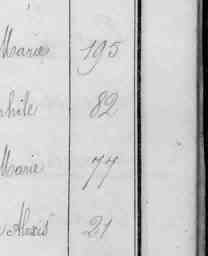 Marie 195
phile 82
Marie 77
Alexis 21